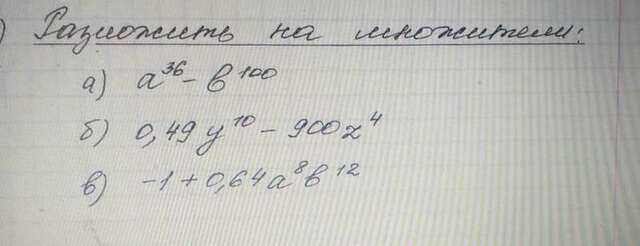 ) Разложить на множители:
а) a³⁶ - b¹⁰⁰
б) 0,49y¹⁰ - 900z⁴
в) -1 + 0,64a⁸b¹²